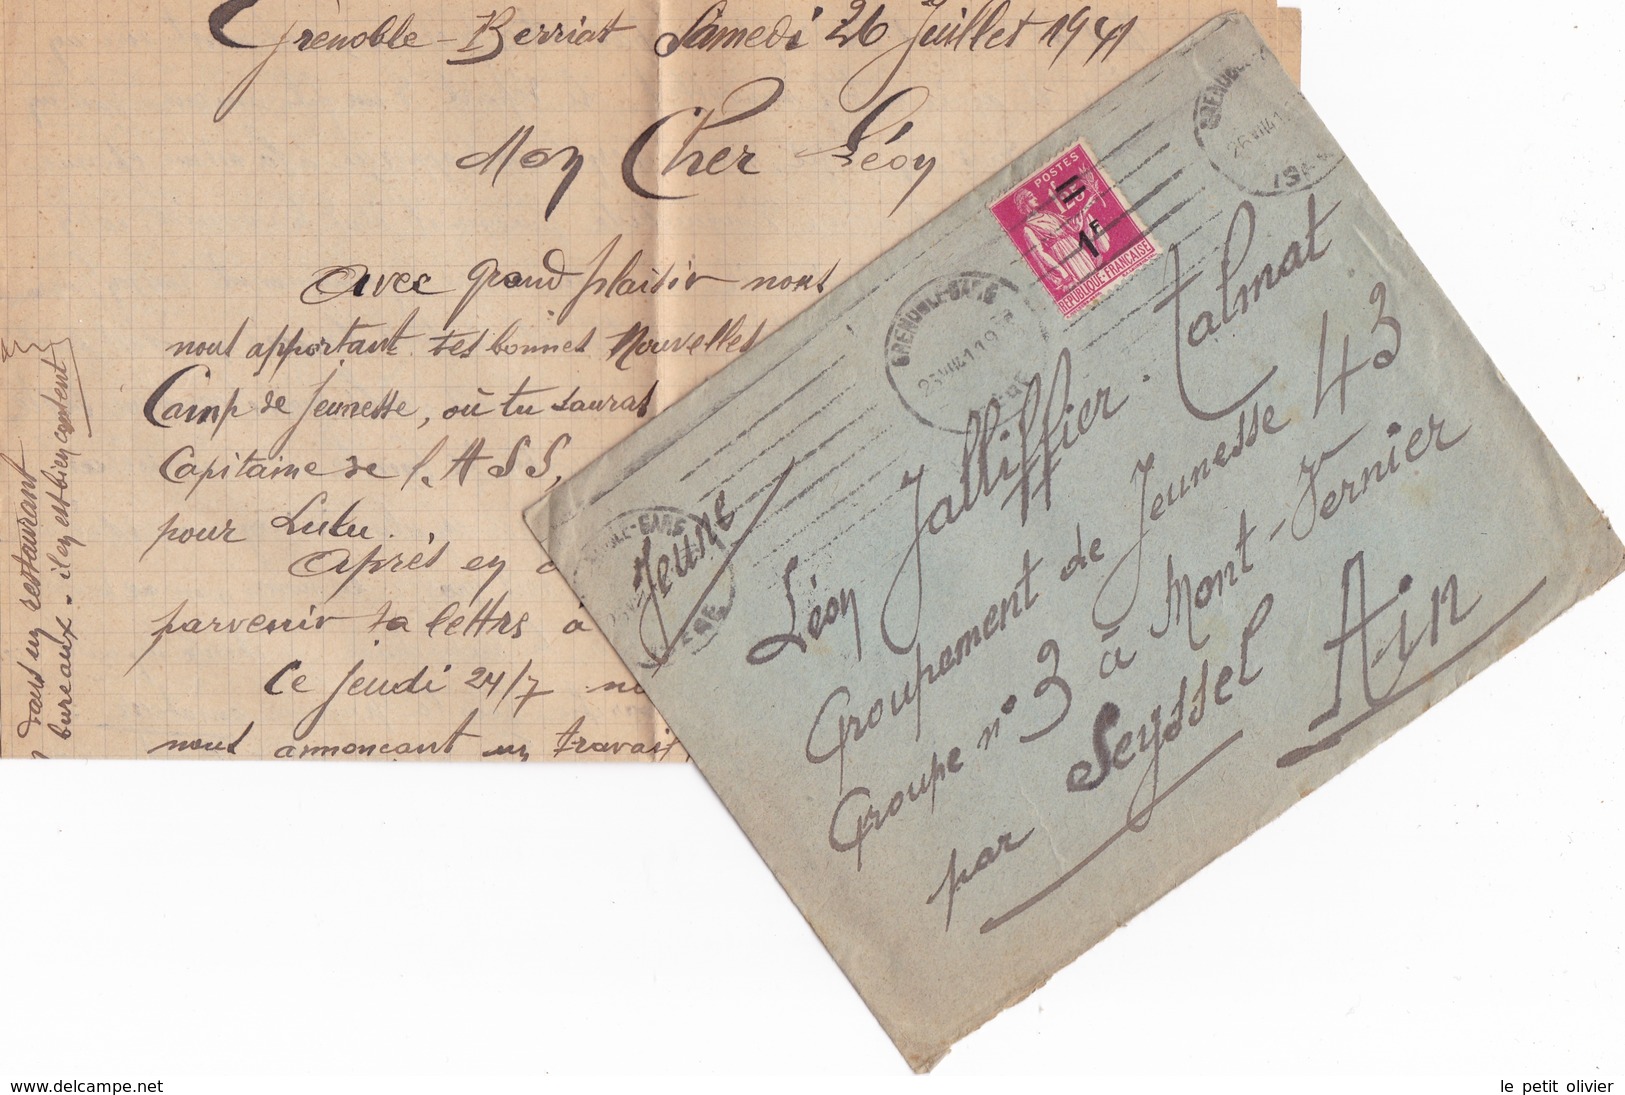 Grenoble-Berriat Samedi 26 Juillet 1941
Mon Cher Léon
Avec grand plaisir nous
nous apportant tes bonnes Nouvelles
Camp de Jeunesse, où tu sauras
Capitaine de l'ASS,
pour Lulu.
Après en
parvenir ta lettre à
Ce Jeudi 24/7
nous annonçant un travail
dans un restaurant
bureaux. il en est bien content
POSTES
1F25
1F
REPUBLIQUE-FRANÇAISE
GRENOBLE-GARE
ISERE
GRENOBLE
26 VII 41
Jeune
Léon Jalliffier. Talmat
Groupement de Jeunesse 43
Groupe n° 3 à Mont-Vernier
par Seyssel Ain
www.delcampe.net
le petit olivier